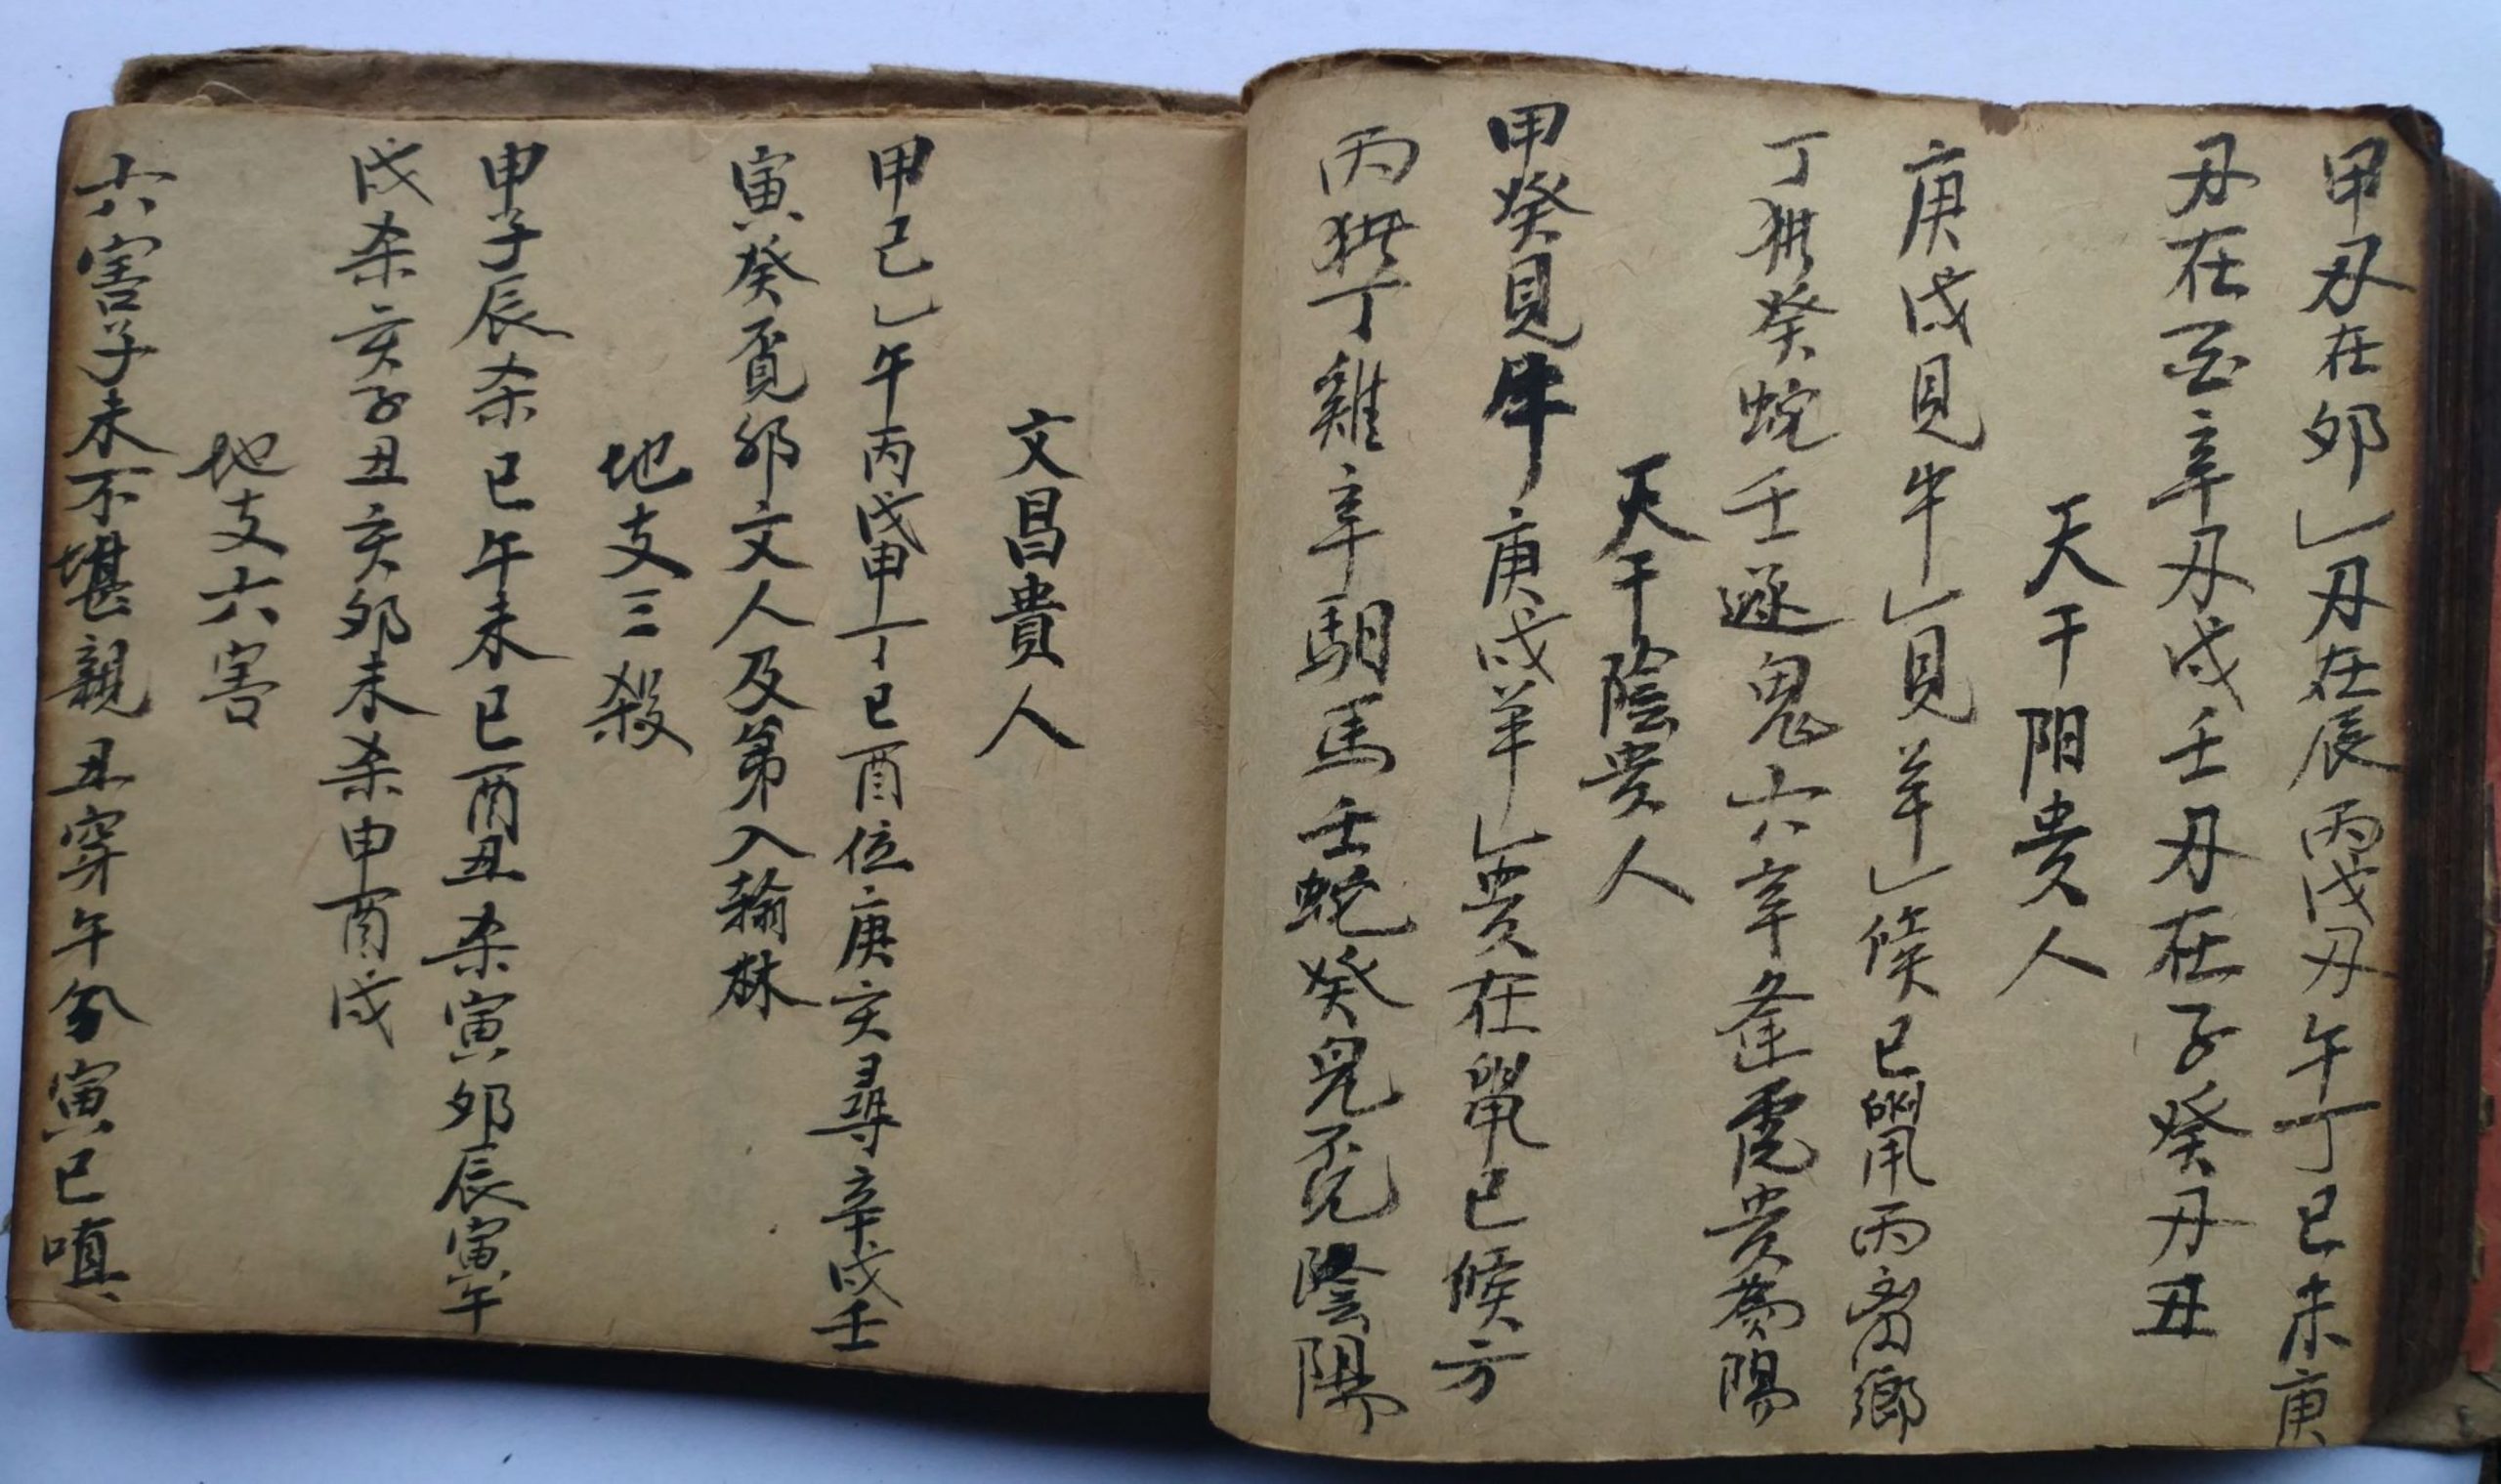 甲刄在卯乚刄在辰丙戊刄午丁己未庚
刄在酉辛刄戌壬刄在子癸刄丑
天干阳贵人
庚戊見牛乚見羊乚候己鼠丙
丁猪癸蛇壬逐鬼六辛逢虎贵為陽
天干陰贵人
甲癸見牛庚戊羊乚贵在鼠己候方
丙猪丁雞辛騎馬壬蛇癸兒兎陰陽
文昌貴人
甲己乚午丙戊申丁己酉位庚亥尋辛戌壬
寅癸覓卯文人及第入翰林
地支三殺
申子辰杀巳午未巳酉丑杀寅卯辰寅午
戌杀亥子丑亥卯未杀申酉戌
地支六害
六害子未不堪親丑穿午兮寅巳嗔